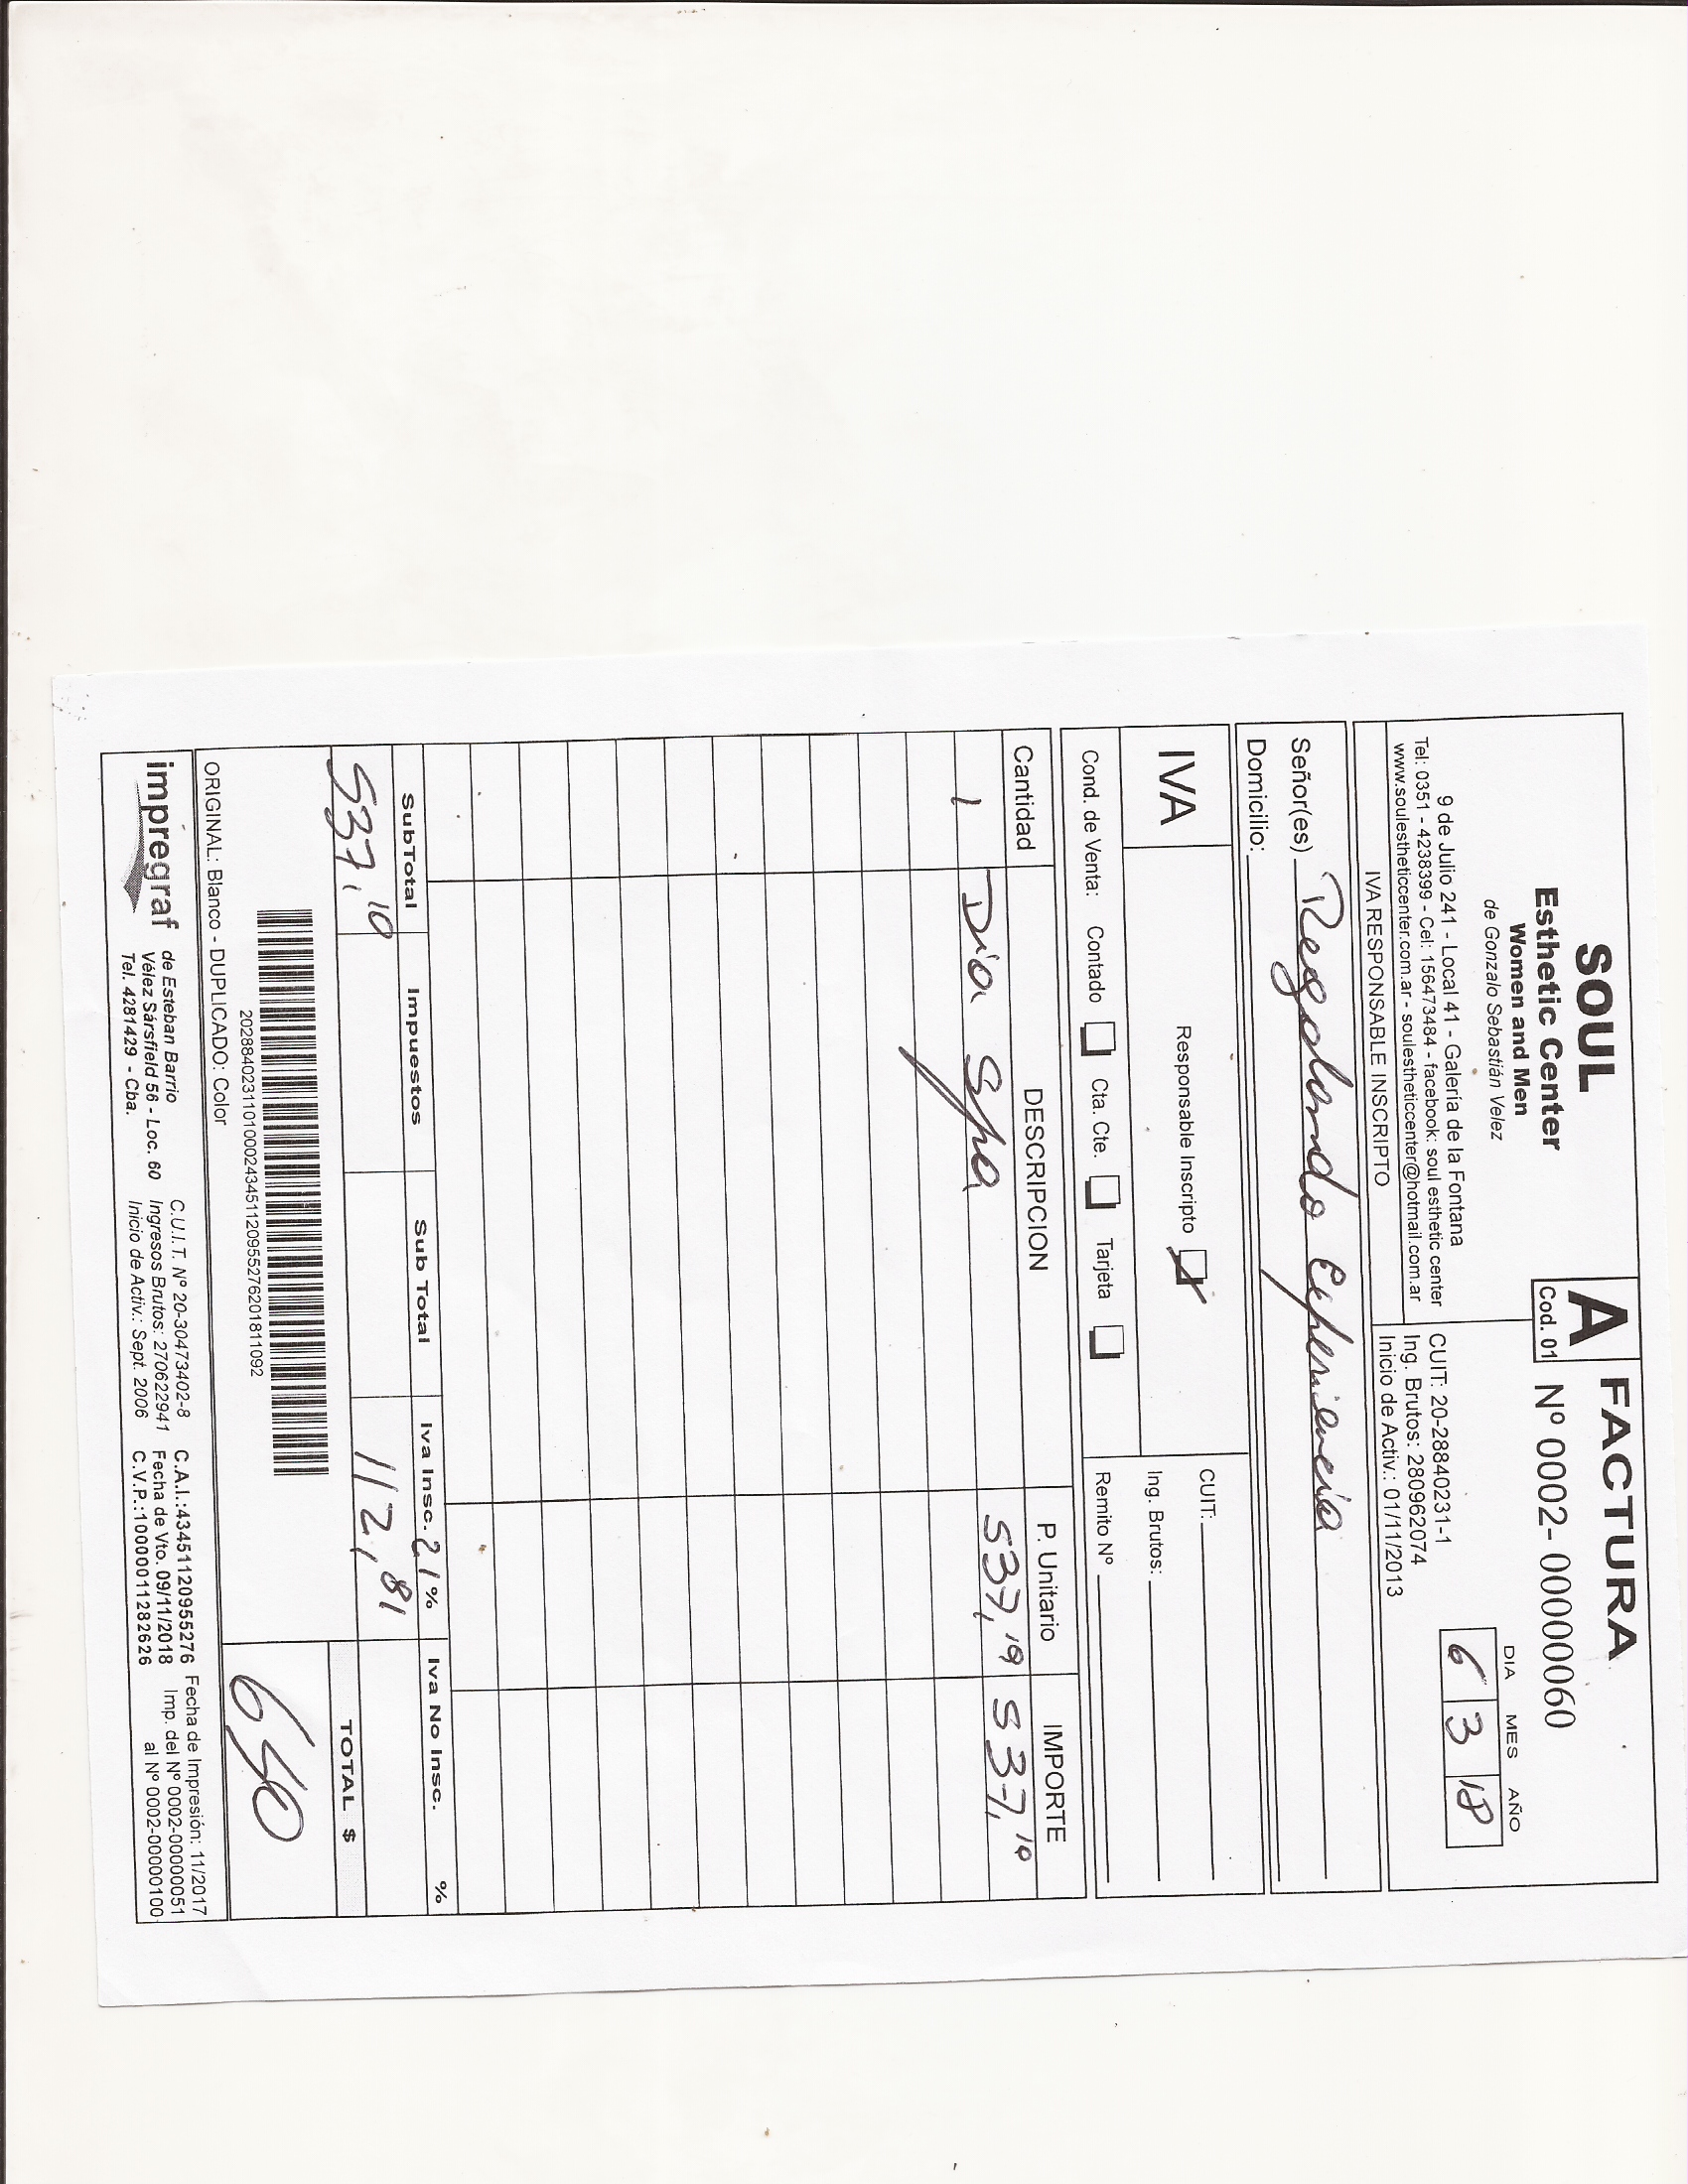 SOUL
Esthetic Center
Women and Men
de Gonzalo Sebastián Velez
9 de Julio 241 - Local 41 - Galería de la Fontana
Tel: 0351 - 4238399 - Cel: 156473484 - facebook: soul esthetic center
www.soulestheticcenter.com.ar - soulestheticcenter@hotmail.com.ar
IVA RESPONSABLE INSCRIPTO
A
Cod. 01
FACTURA
Nº 0002- 00000060
DIA MES AÑO
6 3 18
CUIT: 20-28840231-1
Ing. Brutos: 280962074
Inicio de Activ.: 01/11/2013
Señor(es) Regalando Experiencia
Domicilio:
IVA
Responsable Inscripto
CUIT:
Ing. Brutos:
Cond. de Venta: Contado Cta. Cte. Tarjeta
Remito Nº
Cantidad DESCRIPCION P. Unitario IMPORTE
1 Dia Spa 537,19 537,19
SubTotal Impuestos Sub Total Iva Insc. 21% Iva No Insc. %
537,19 112,81
TOTAL $
650
2028840231101000243451120955276201811092
ORIGINAL: Blanco - DUPLICADO: Color
impregraf
de Esteban Barrio
Vélez Sársfield 56 - Loc. 60
Tel. 4281429 - Cba.
C.U.I.T. Nº 20-30473402-8
Ingresos Brutos: 270622941
Inicio de Activ.: Sept. 2006
C.A.I.:43451120955276
Fecha de Vto. 09/11/2018
C.V.P.:10000011282626
Fecha de Impresión: 11/2017
Imp. del Nº 0002-00000051
al Nº 0002-00000100